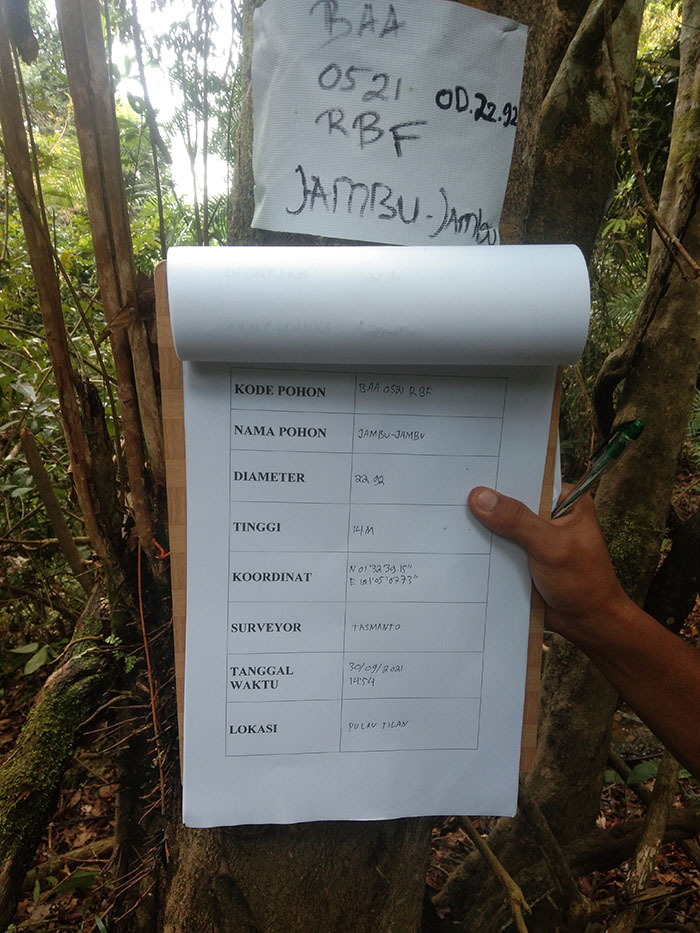 BAA
0521 OD.22.92
RBF
JAMBU-JAMBU
DIAMETER
NAMA POHON
KODE POHON BAA 0521 RBF
NAMA POHON JAMBU-JAMBU
DIAMETER 22.92
TINGGI 14 M
KOORDINAT N 01°32'39.15"
E 101°05'07.73"
SURVEYOR TASMANTO
TANGGAL 30/09/2021
WAKTU 14:54
LOKASI PULAU TILAN